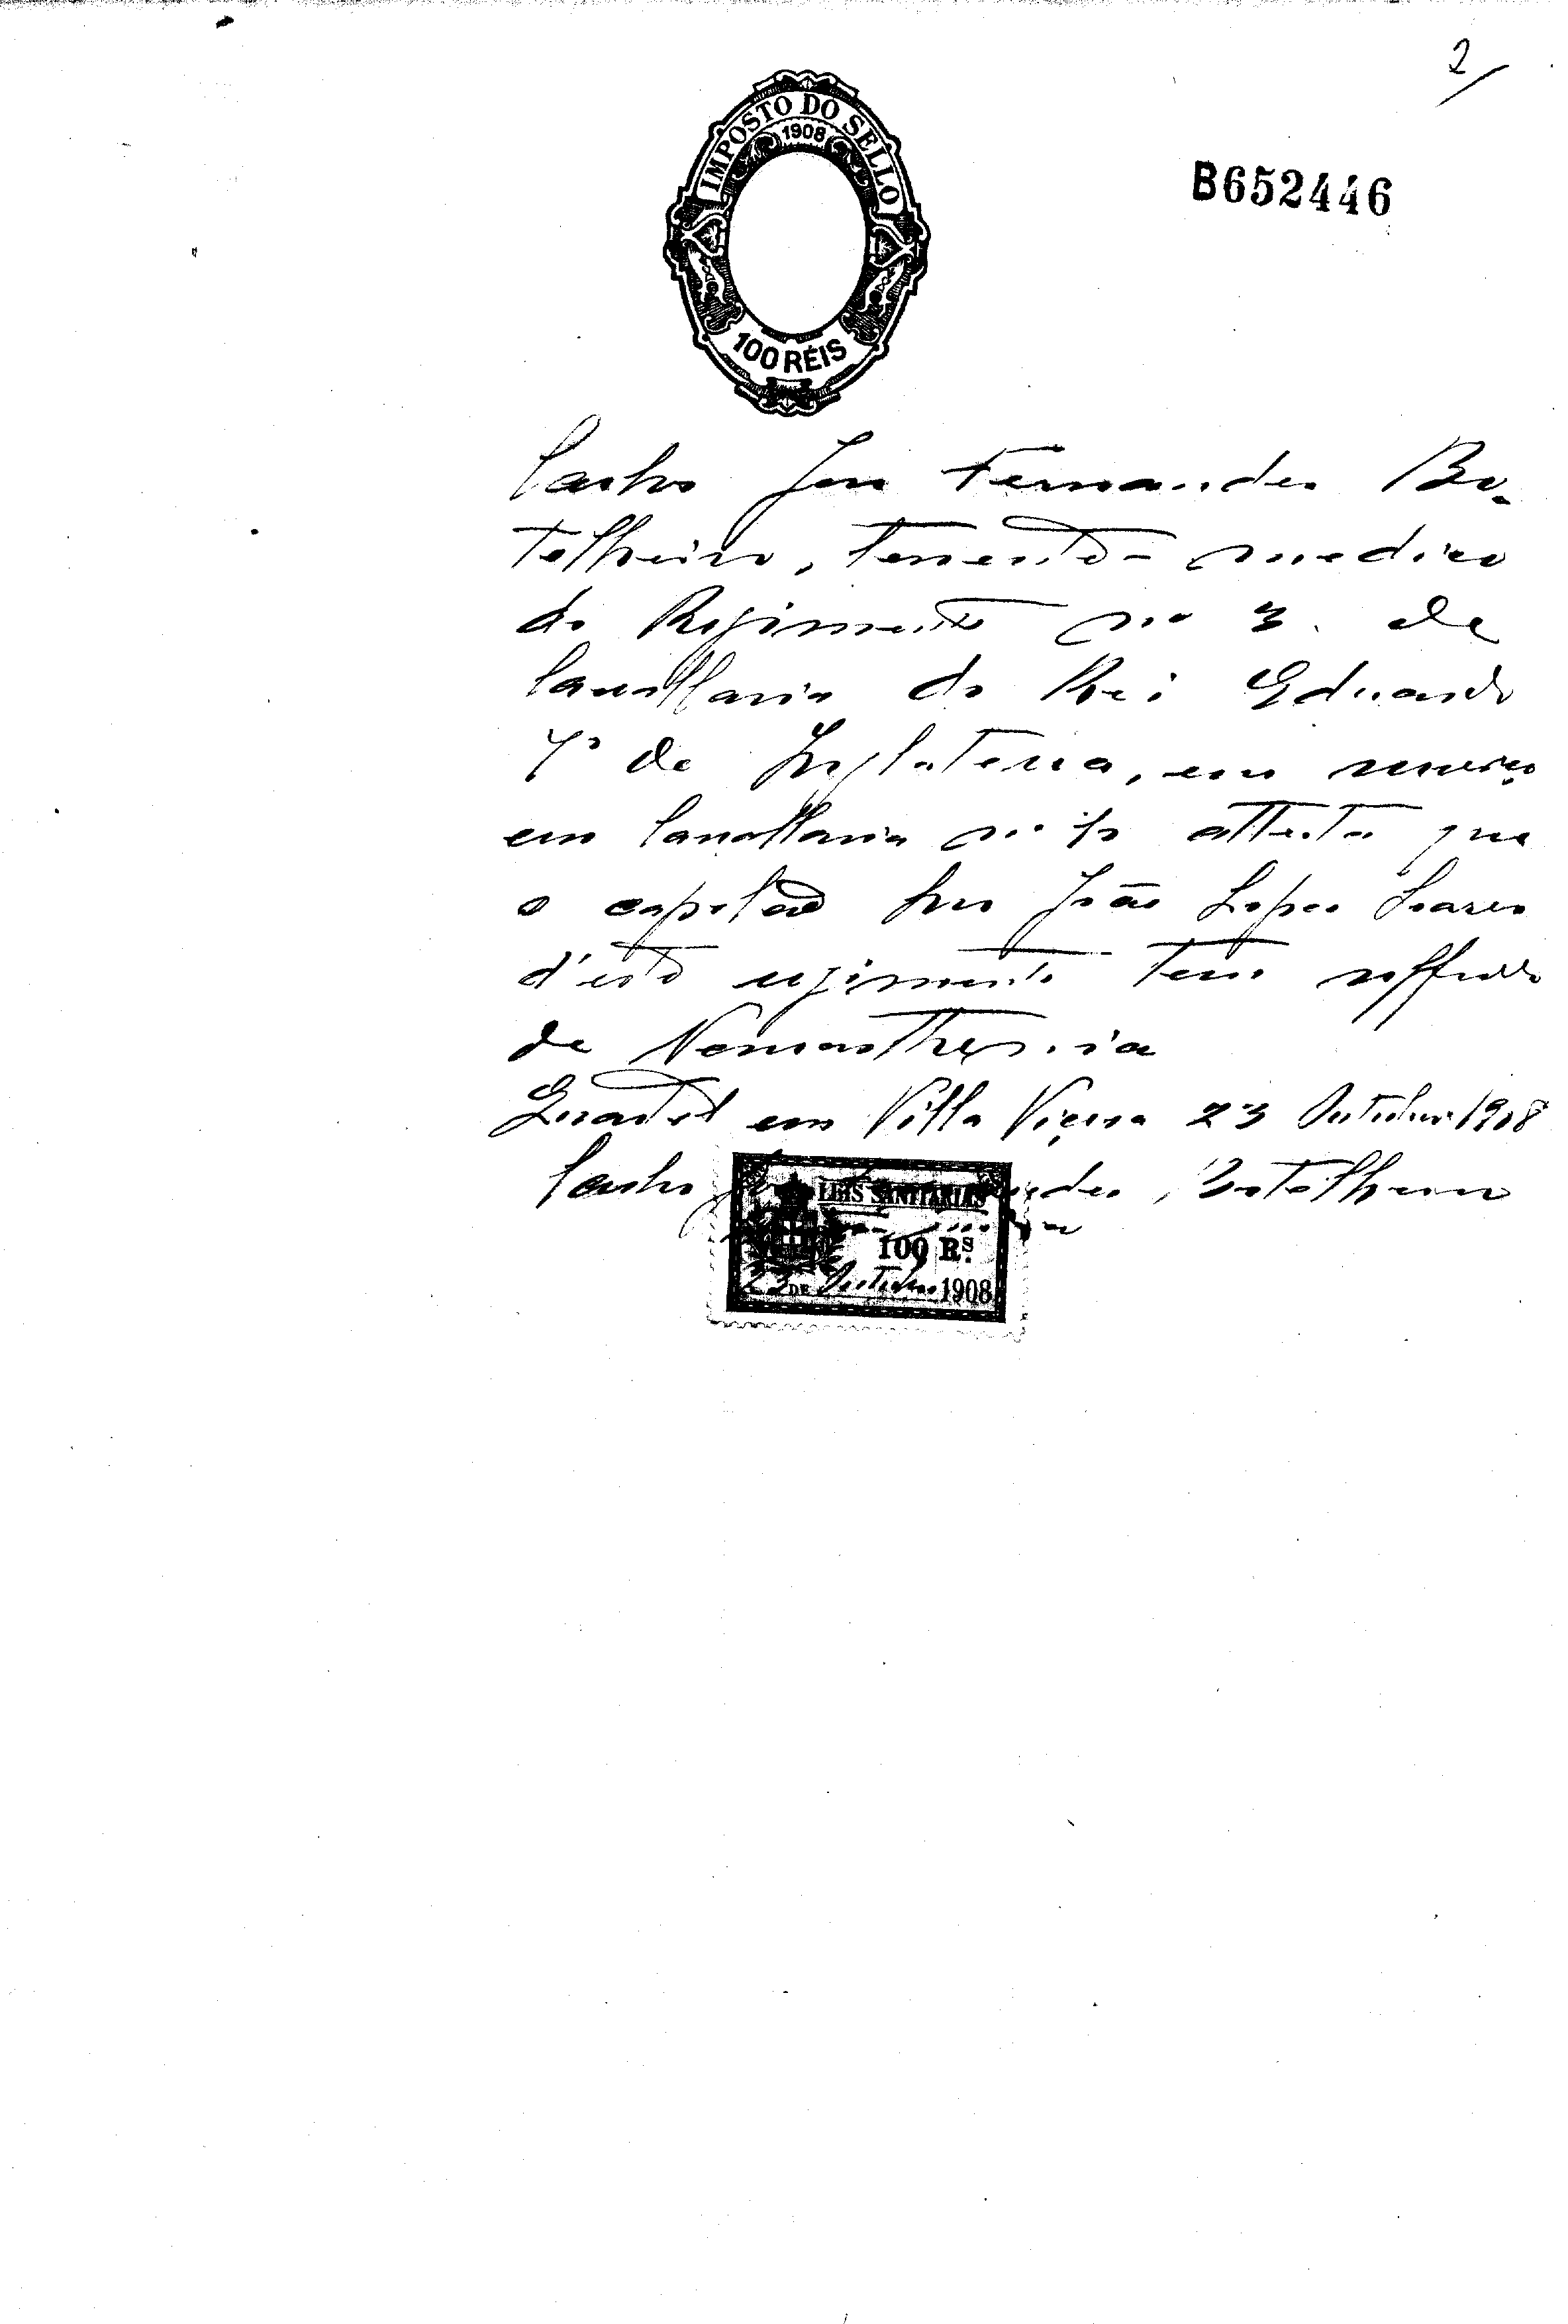 2
IMPOSTO DO SELLO
1908
B652446
100 RÉIS
Carlos José Fernandes Bo-
telheiro, tenente-medico
do Regimento nº 3 de
Cavallaria do Rei Eduardo
7º de Inglaterra, em serviço
em Cavallaria nº 10 attesto que
o capitão Snr João Lopes Soares
d'este regimento tem soffrido
de Neurasthenia
Quartel em Villa Viçosa 23 Outubro 1908
Carlos José Fernandes Botelheiro
LEIS SANITARIAS
100 Rs.
23 DE Outubro 1908